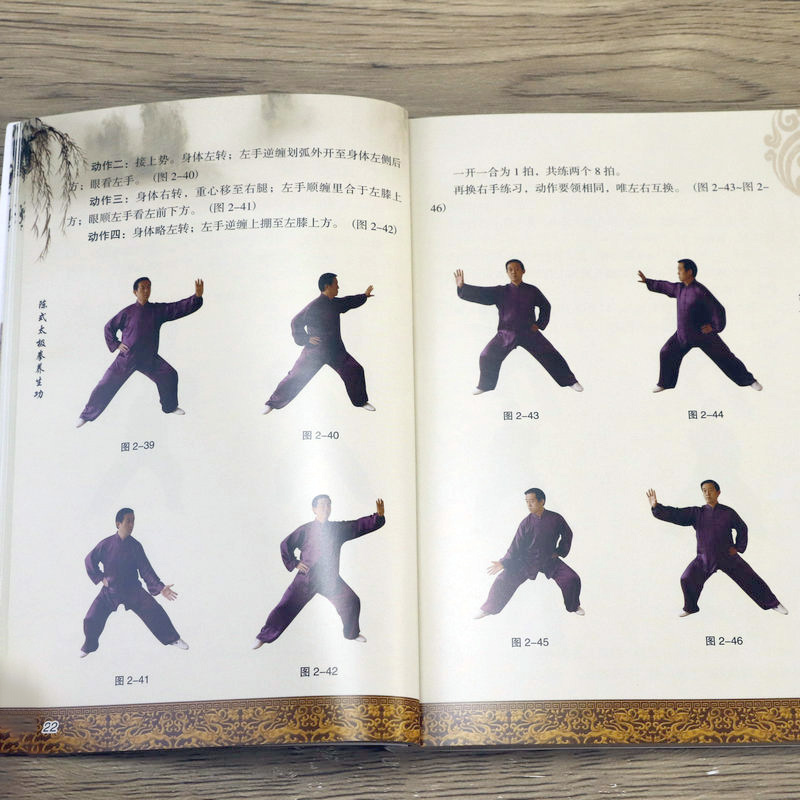 动作二：接上势。身体左转；左手逆缠划弧外开至身体左侧后
方；眼看左手。（图 2-40）
动作三：身体右转，重心移至右腿；左手顺缠里合于左膝上
方；眼顺左手看左前下方。（图 2-41）
动作四：身体略左转；左手逆缠上掤至左膝上方。（图 2-42）
陈式太极拳养生功
图 2-39
图 2-40
图 2-41
图 2-42
22
一开一合为 1 拍，共练两个 8 拍。
再换右手练习，动作要领相同，唯左右互换。（图 2-43~图 2-
46）
图 2-43
图 2-44
图 2-45
图 2-46